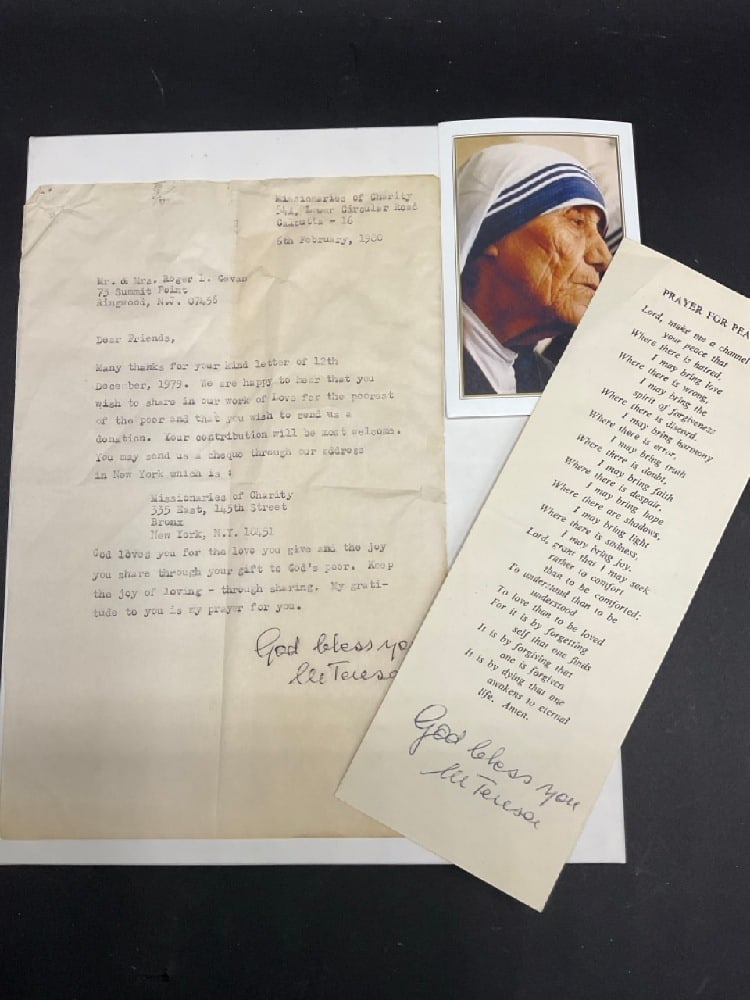 Missionaries of Charity
54A, Lower Circular Road
Calcutta - 16
6th February, 1980
Mr. & Mrs. Roger L. Cavan
73 Summit Point
Ringwood, N.J. 07456
Dear Friends,
Many thanks for your kind letter of 12th
December, 1979. We are happy to hear that you
wish to share in our work of Love for the poorest
of the poor and that you wish to send us a
donation. Your contribution will be most welcome.
You may send us a cheque through our address
in New York which is :
Missionaries of Charity
335 East, 145th Street
Bronx
New York, N.Y. 10451
God loves you for the love you give and the joy
you share through your gift to God's poor. Keep
the joy of loving - through sharing. My grati-
tude to you is my prayer for you.
God bless yo
M Teresa
PRAYER FOR PEA
Lord, make me a channel
your peace that
Where there is hatred,
I may bring love
Where there is wrong,
I may bring the
spirit of forgiveness
Where there is discord,
I may bring harmony
Where there is error,
I may bring truth
Where there is doubt,
I may bring faith
Where there is despair,
I may bring hope
Where there are shadows,
I may bring light
Where there is sadness,
I may bring joy.
Lord, grant that I may seek
rather to comfort
than to be comforted;
To understand than to be
understood
To love than to be loved
For it is by forgetting
self that one finds
It is by forgiving that
one is forgiven
It is by dying that one
awakens to eternal
life. Amen.
God bless you
M Teresa